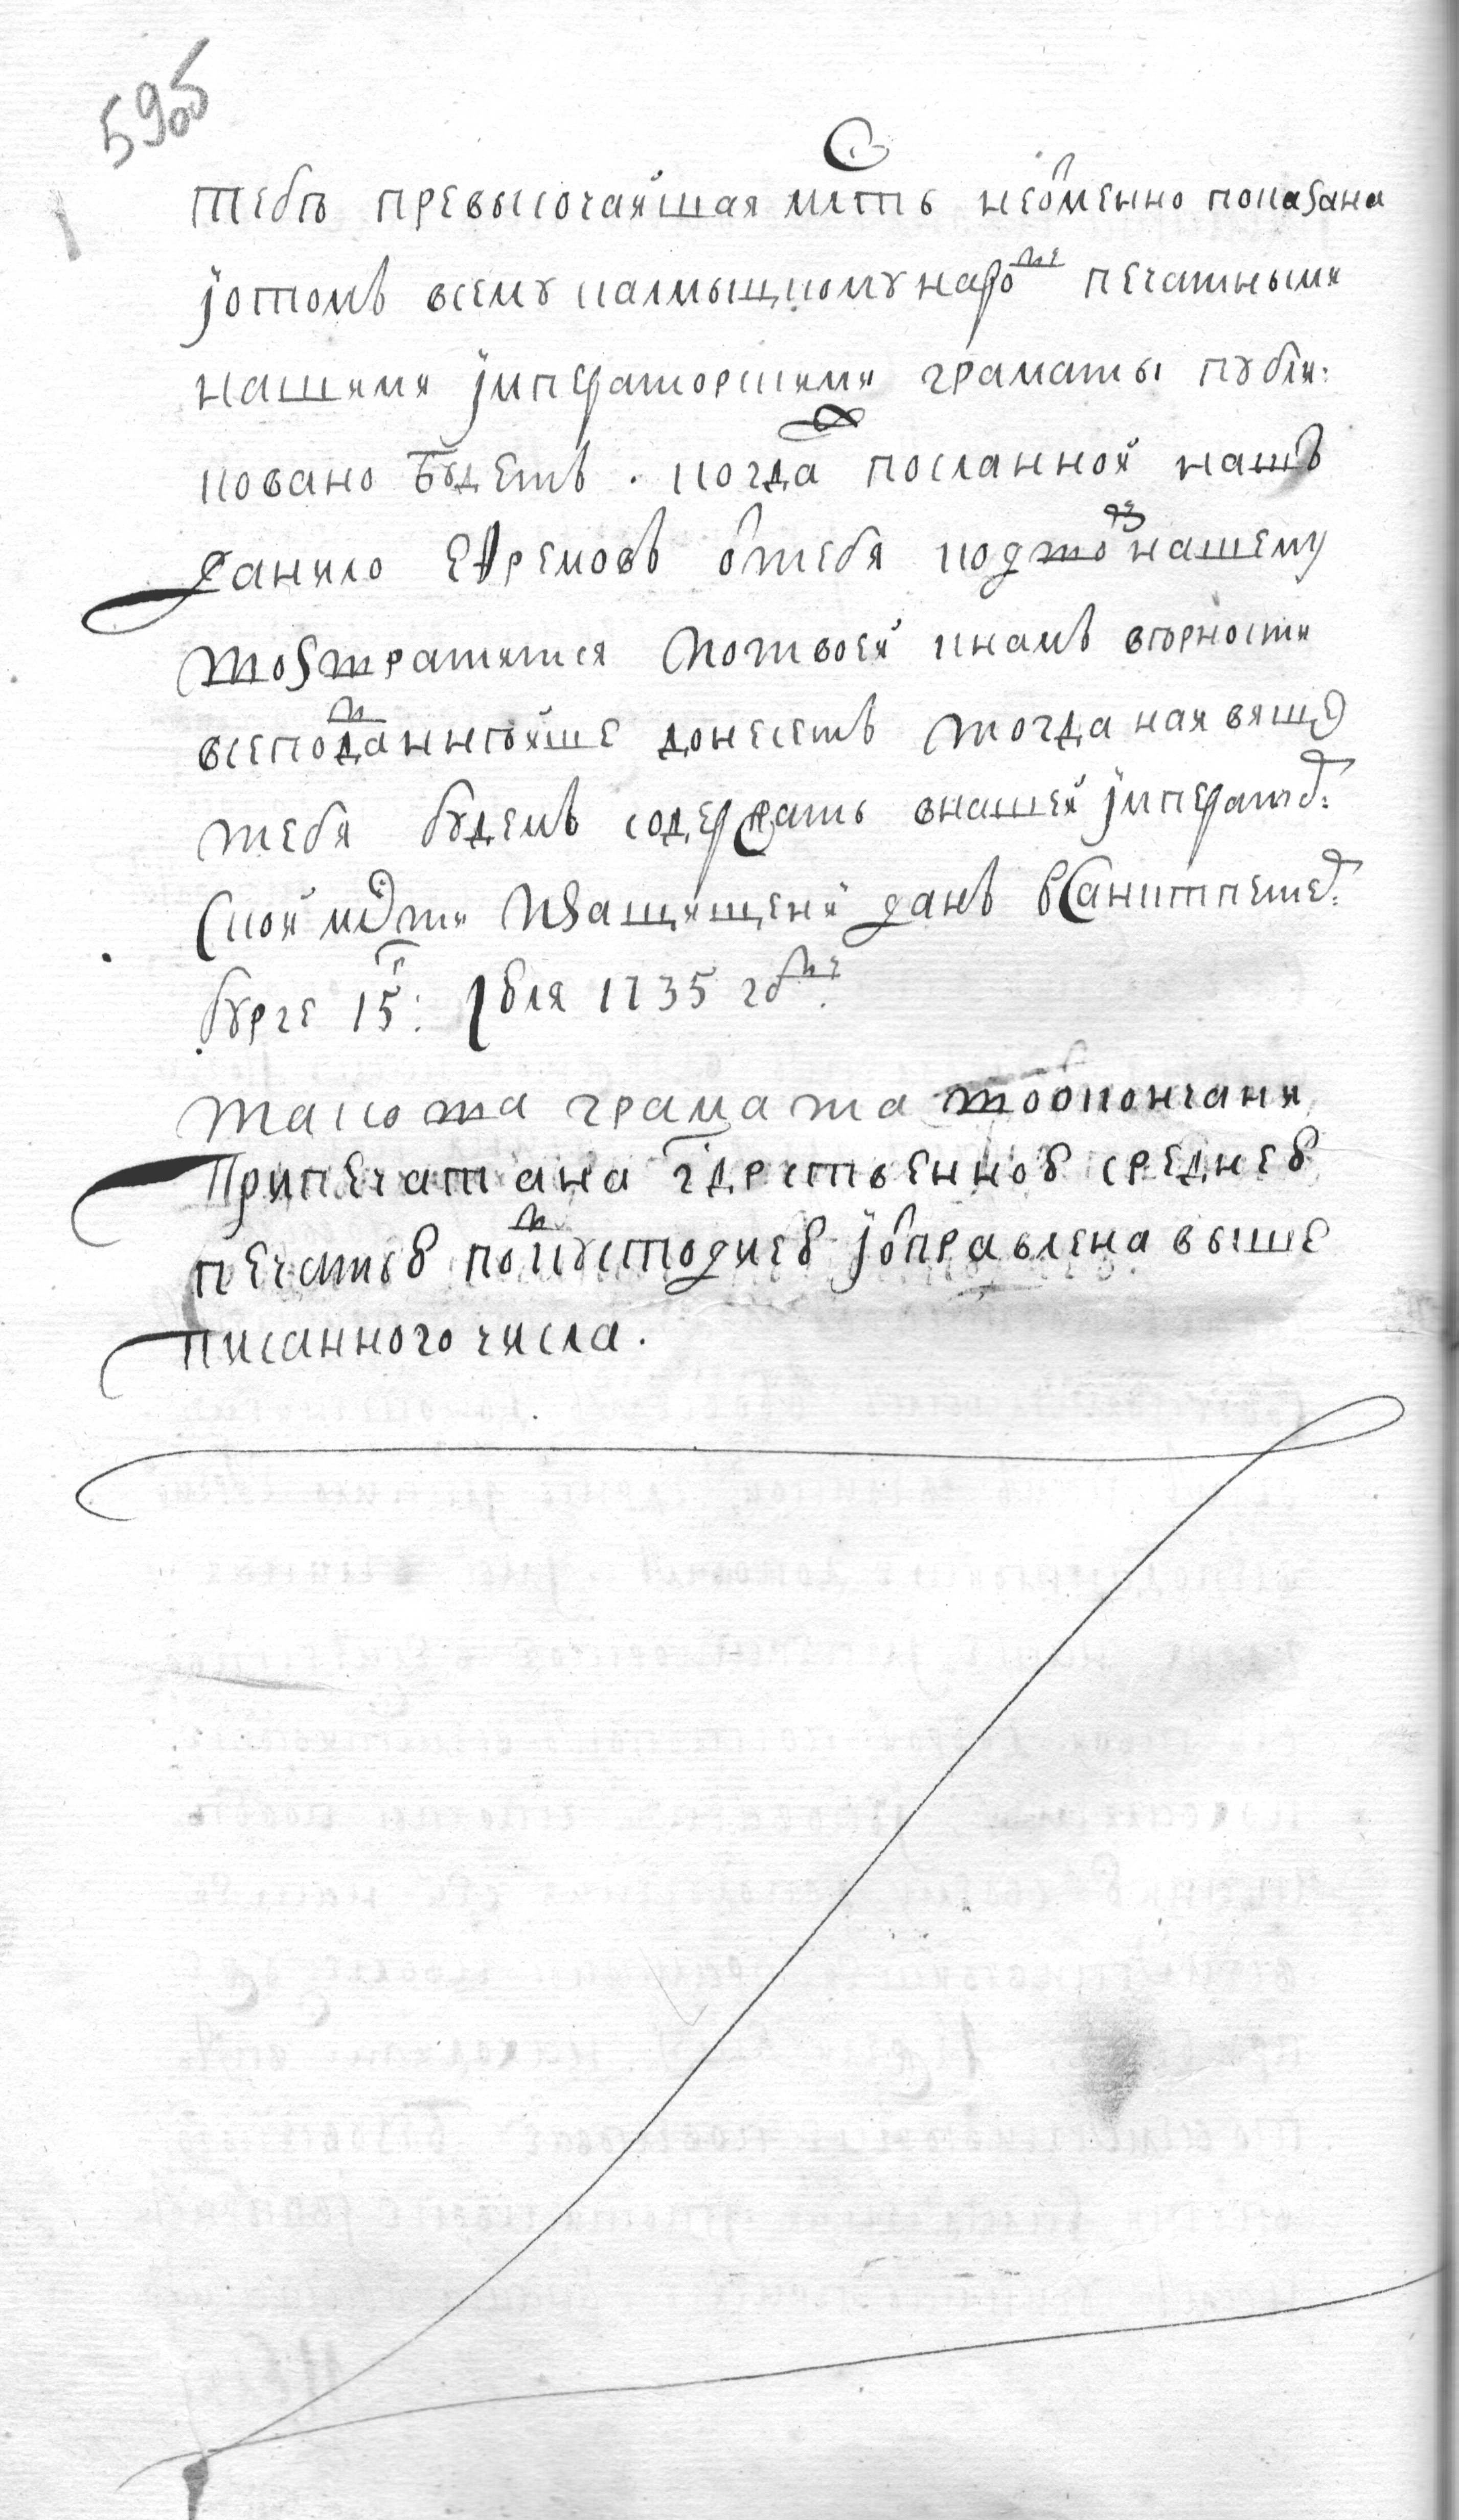 595
тебѣ превысочайшая млсть неѿменно показана
ј отомъ всему калмыцкому народу печатными
нашими јмператорскими граматы публи:
ковано будетъ. когда посланной нашъ
данило Ефремовъ ѿ тебя кодвору нашему
возвратится ј о твоей кнамъ вѣрности
всеподаннѣйше донесетъ тогда наивяще
тебя будемъ содержать внашей јмператор:
ской млсти ј взащищени данъ всанктпетер:
бурге 15: 1735 году
такова грамата
припечатана гдрственною среднею
печатью под кустодиею ј ѿправлена выше
писанного числа.